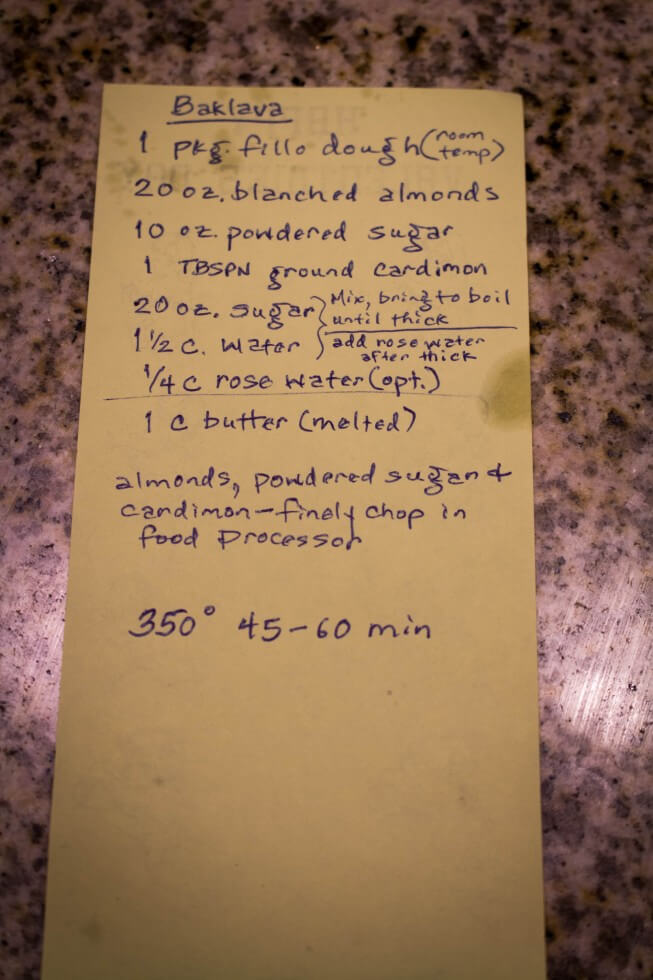 Baklava
1 pkg. fillo dough (room temp)
20 oz. blanched almonds
10 oz. powdered sugar
1 TBSPN ground cardimon
20 oz. sugar } Mix, bring to boil until thick
1 1/2 c. water } add rose water after thick
1/4 c rose water (opt.)
1 c butter (melted)
almonds, powdered sugar &
cardimon - finely chop in
food processor
350° 45-60 min